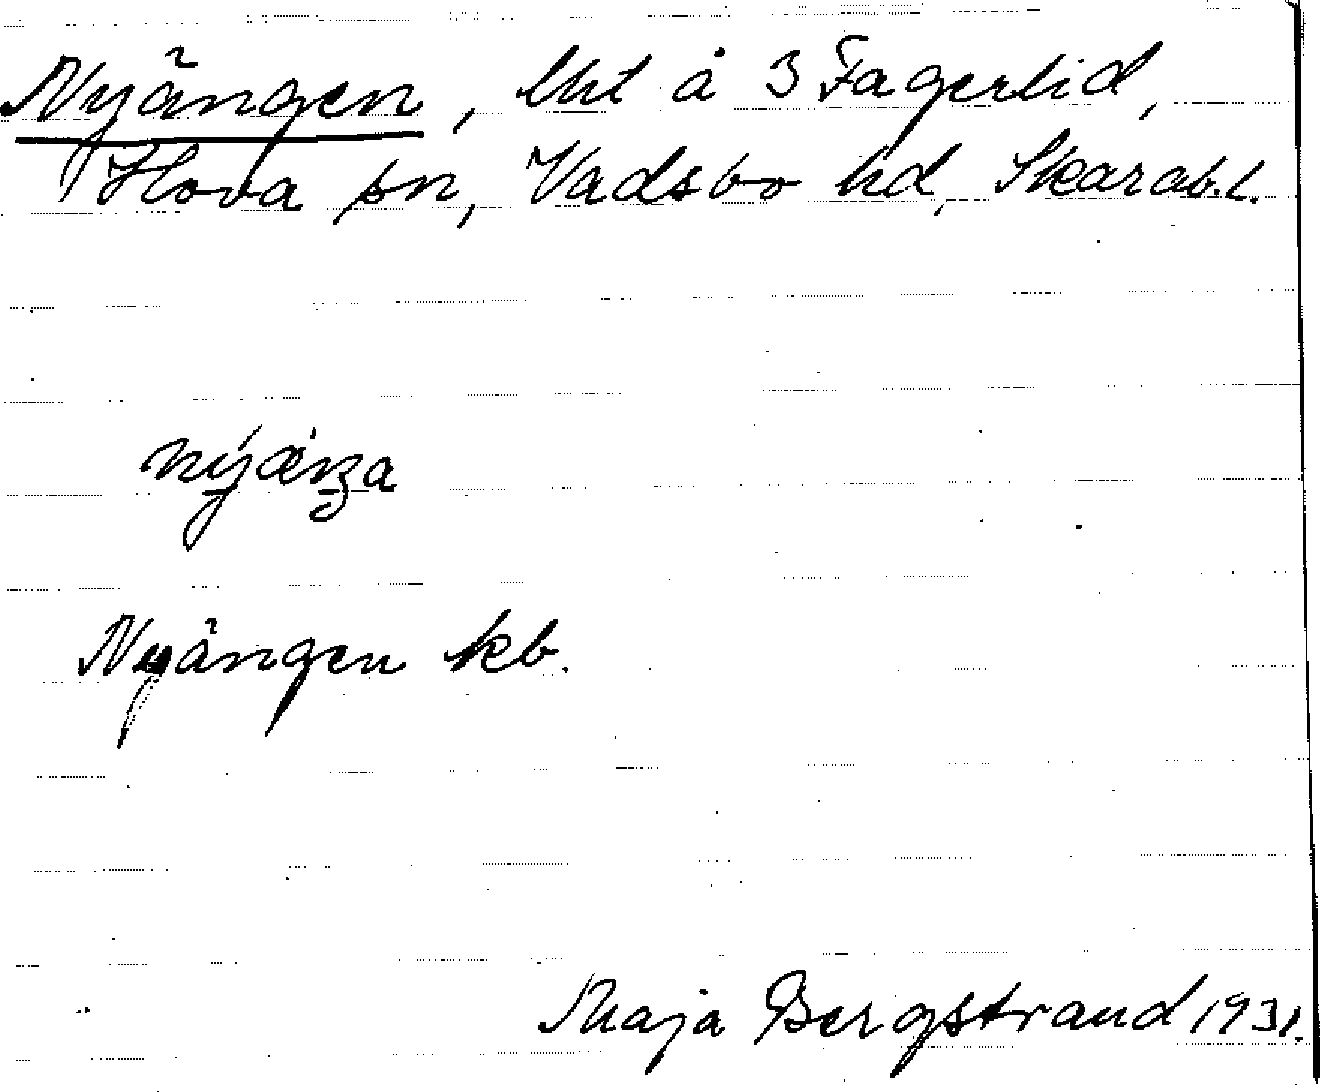 Nyängen, lht å 3 Fagerlid,
Hova sn, Vadsbo hd, Skarab.l.
Nyängen kb.
Maja Bergstrand 1931.